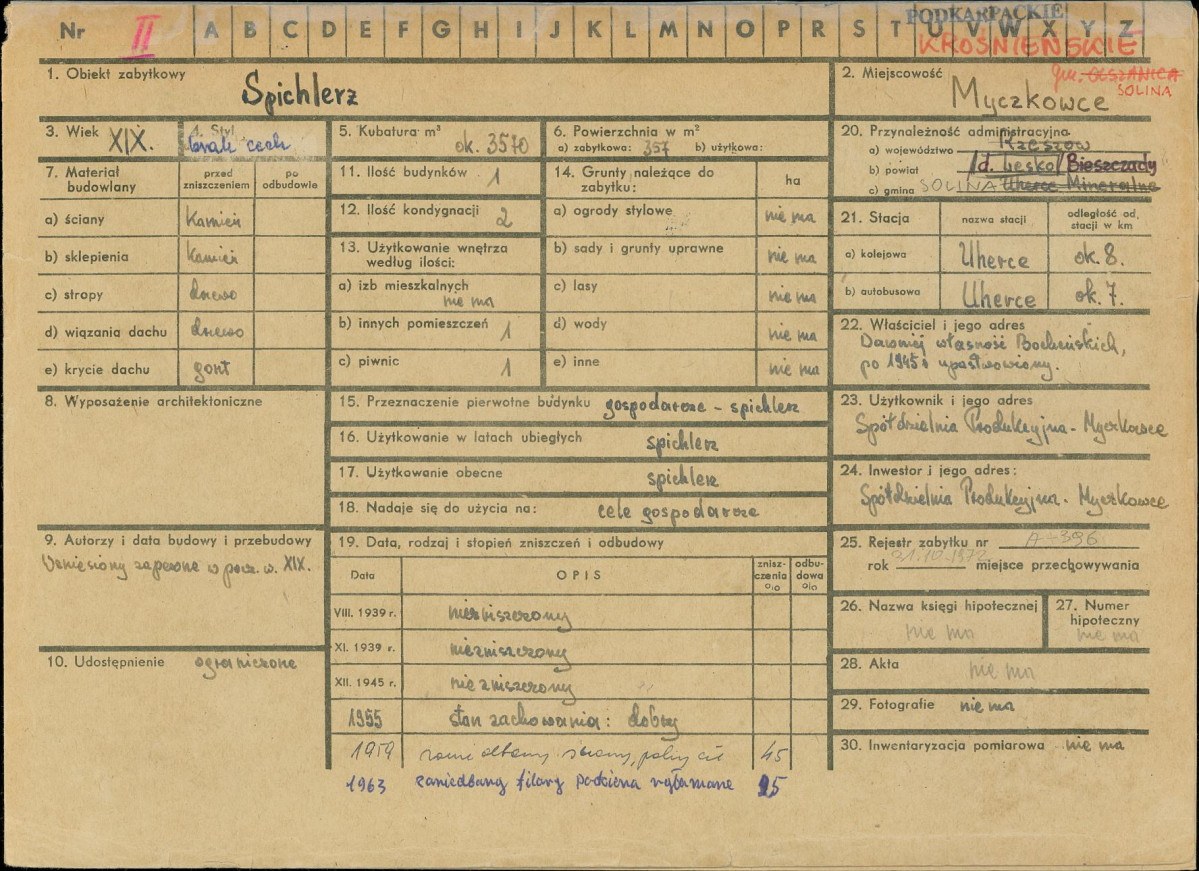 Nr II A B C D E F G H I J K L M N O P R S T U V W X Y Z
PODKARPACKIE
KROŚNIEŃSKIE
gm. OLSZANICA
SOLINA
1. Obiekt zabytkowy
Spichlerz
2. Miejscowość
Myczkowce
3. Wiek XIX.
4. Styl
brak cech
5. Kubatura m³
ok. 3570
6. Powierzchnia w m²
a) zabytkowa: 357 b) użytkowa:
7. Materiał budowlany
przed zniszczeniem
po odbudowie
a) ściany Kamień
b) sklepienia Kamień
c) stropy drzewo
d) wiązania dachu drzewo
e) krycie dachu gont
8. Wyposażenie architektoniczne
9. Autorzy i data budowy i przebudowy
Wzniesiony zapewne w pocz. w. XIX.
10. Udostępnienie ograniczone
11. Ilość budynków 1
12. Ilość kondygnacji 2
13. Użytkowanie wnętrza
według ilości:
a) izb mieszkalnych
nie ma
b) innych pomieszczeń 1
c) piwnic 1
14. Grunty należące do
zabytku:
ha
a) ogrody stylowe nie ma
b) sady i grunty uprawne nie ma
c) lasy nie ma
d) wody nie ma
e) inne nie ma
15. Przeznaczenie pierwotne budynku gospodarcze - spichlerz
16. Użytkowanie w latach ubiegłych spichlerz
17. Użytkowanie obecne spichlerz
18. Nadaje się do użycia na: cele gospodarcze
19. Data, rodzaj i stopień zniszczeń i odbudowy
Data OPIS zniszczenia o/o odbudowa o/o
VIII. 1939 r. niezniszczony
XI. 1939 r. niezniszczony
XII. 1945 r. niezniszczony
1955 stan zachowania: dobry
1959 45
1963 zaniedbany filary podcienia wyłamane 25
20. Przynależność administracyjna
a) województwo Rzeszów
b) powiat /d. Lesko/ Bieszczady
c) gmina SOLINA Uherce Mineralne
21. Stacja
nazwa stacji
odległość od stacji w km
a) kolejowa Uherce ok. 8.
b) autobusowa Uherce ok. 7.
22. Właściciel i jego adres
Dawniej własność Bocheńskich,
po 1945 r upaństwowiony.
23. Użytkownik i jego adres
Spółdzielnia Produkcyjna - Myczkowce
24. Inwestor i jego adres:
Spółdzielnia Produkcyjna - Myczkowce
25. Rejestr zabytku nr A-396
rok 31.10.1972 miejsce przechowywania
26. Nazwa księgi hipotecznej
nie ma
27. Numer
hipoteczny
nie ma
28. Akta nie ma
29. Fotografie nie ma
30. Inwentaryzacja pomiarowa nie ma